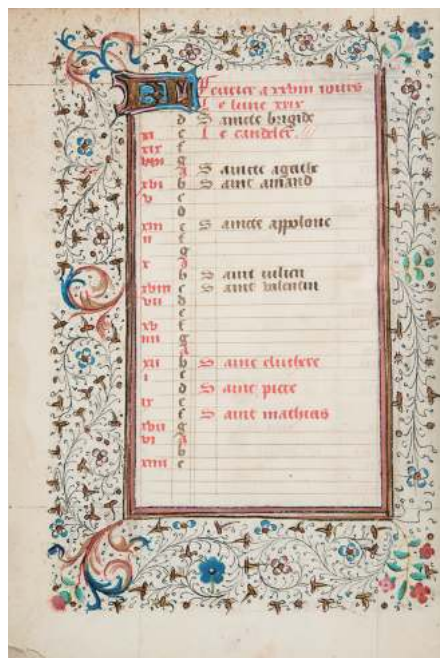 KL Feurier a xxviii iours
Le lune xxix
d Saincte brigide
xi e Le candeler.
xix f
viii g
A Saincte agathe
xvi b Saint amand
v c
d
xiii e Saincte appolone
ii f
g
x A
b Saint iulien
xviii c Saint valentin
vii d
e
xv f
iiii g
A
xii b Saint eluthere
i c
d Saint piere
ix e
f Saint mathias
xvii g
vi A
b
xiiii c